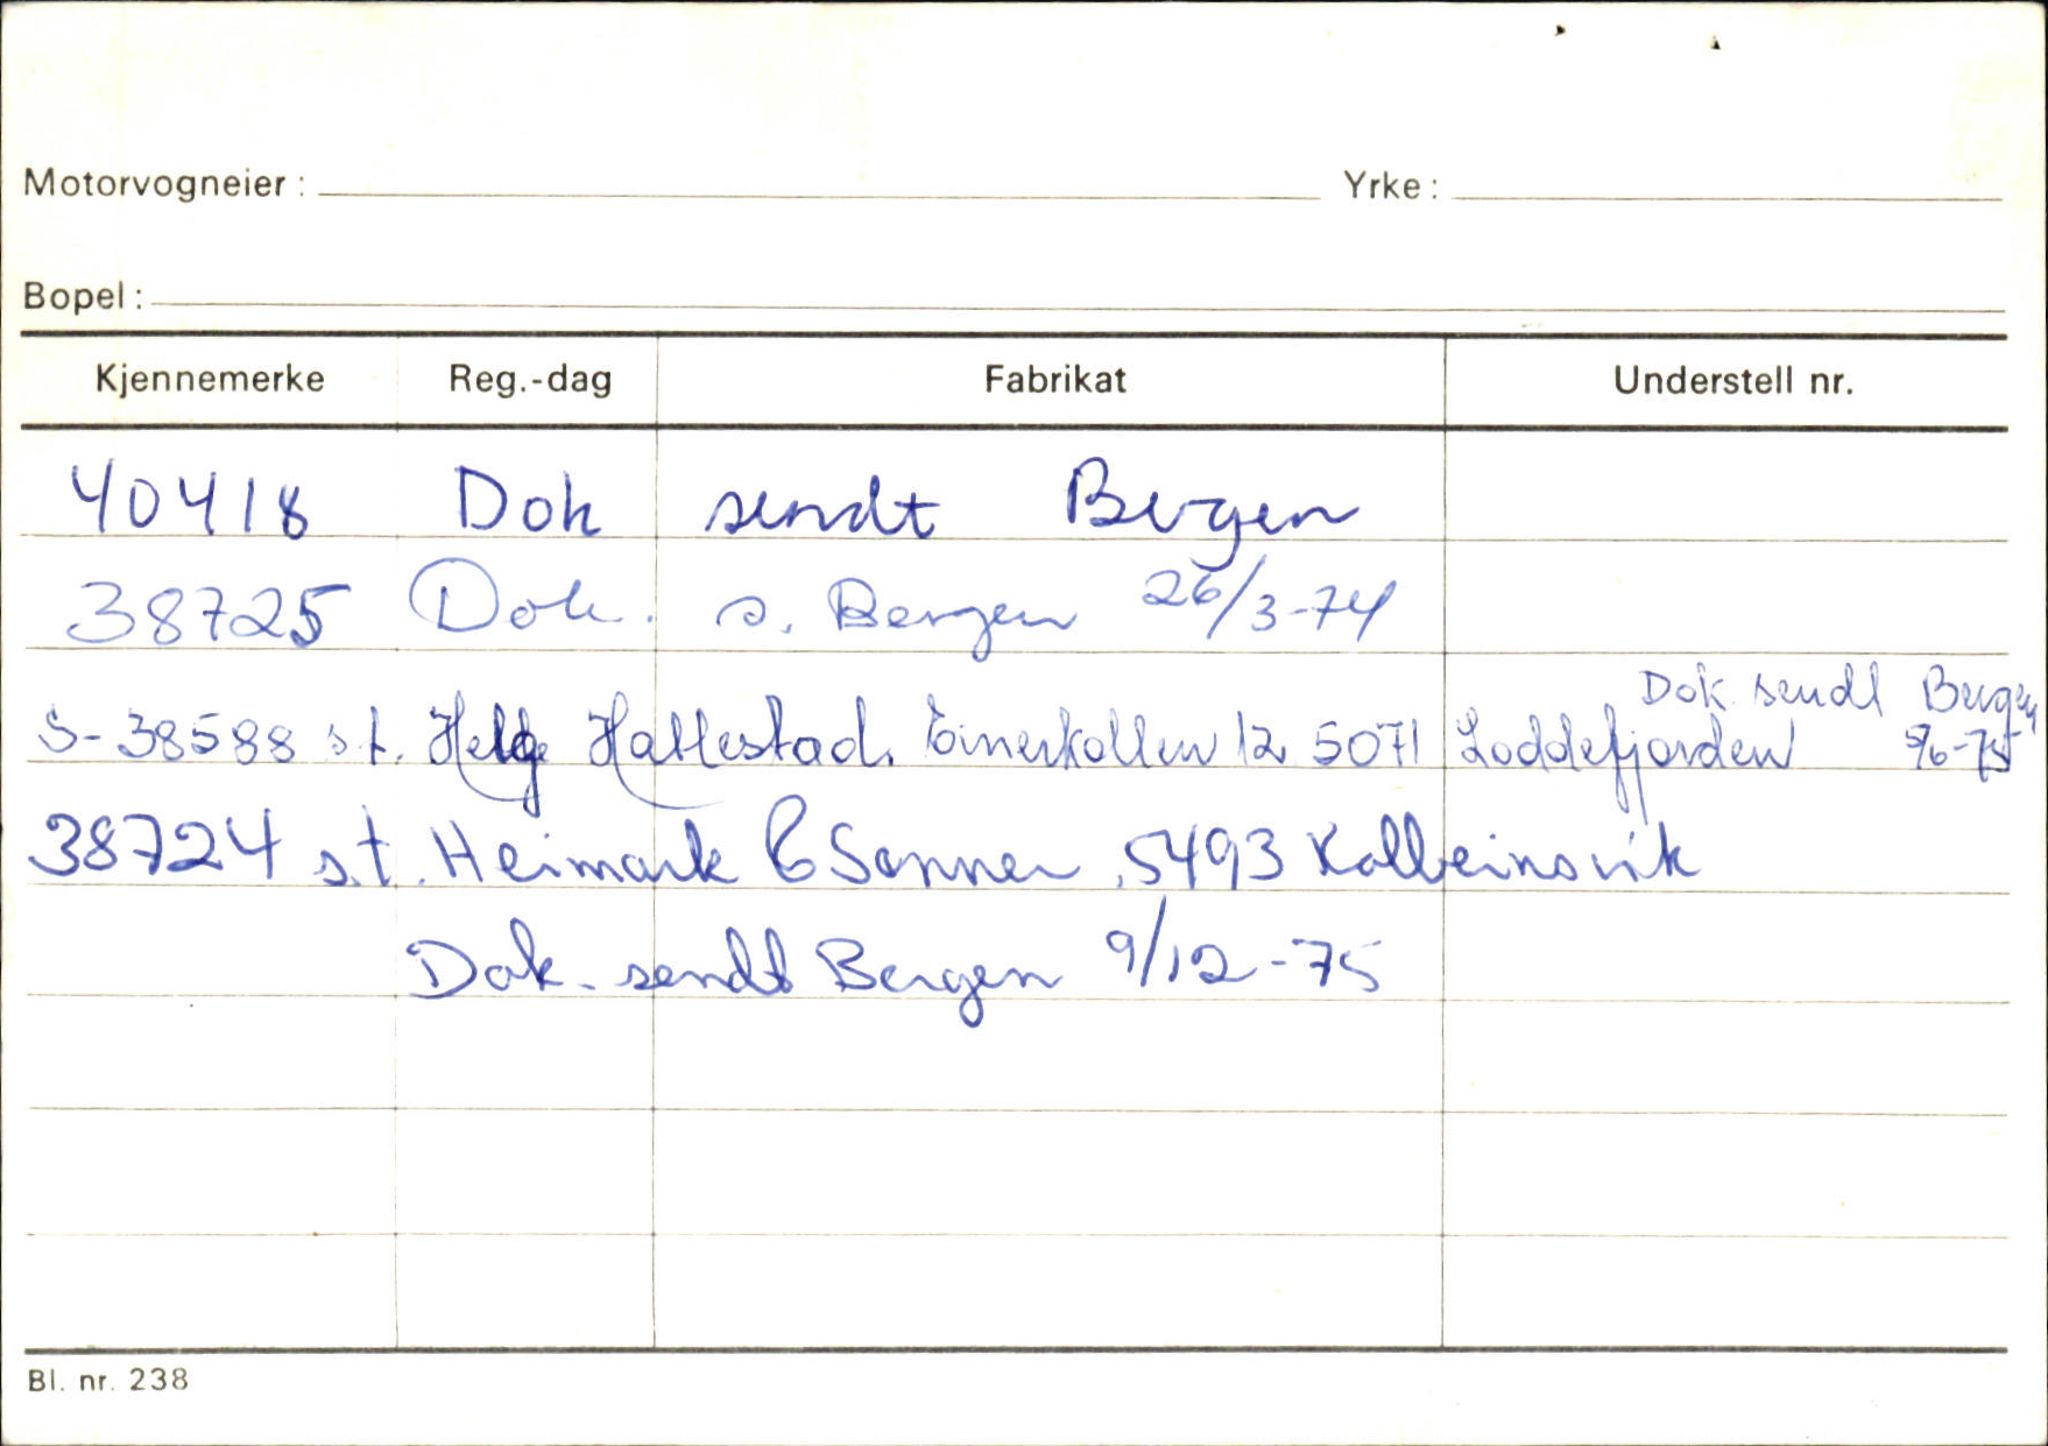 Motorvogneier: Yrke:
Bopel:
Kjennemerke Reg.-dag Fabrikat Understell nr.
40418 Dok sendt Bergen
38725 Dok. s. Bergen 26/3-74
Dok sendt Bergen
S-38588 s.t. Helge Hatlestad. 12 5071 Loddefjorden 5/6-75
38724 s.t. Heimark & Sønner, 5493 Kolbeinsvik
Dok. sendt Bergen 9/12-75
Bl. nr. 238